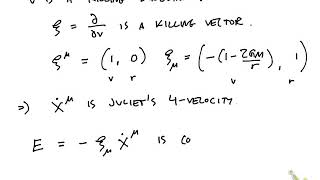 ξ = ∂/∂v IS A KILLING VECTOR.
ξ^μ = (1, 0) ξ_μ = (-(1 - 2GM/r), 1)
v r v r
⇒) ẋ^μ IS JULIET'S 4-VELOCITY.
E = - ξ_μ ẋ^μ IS CO